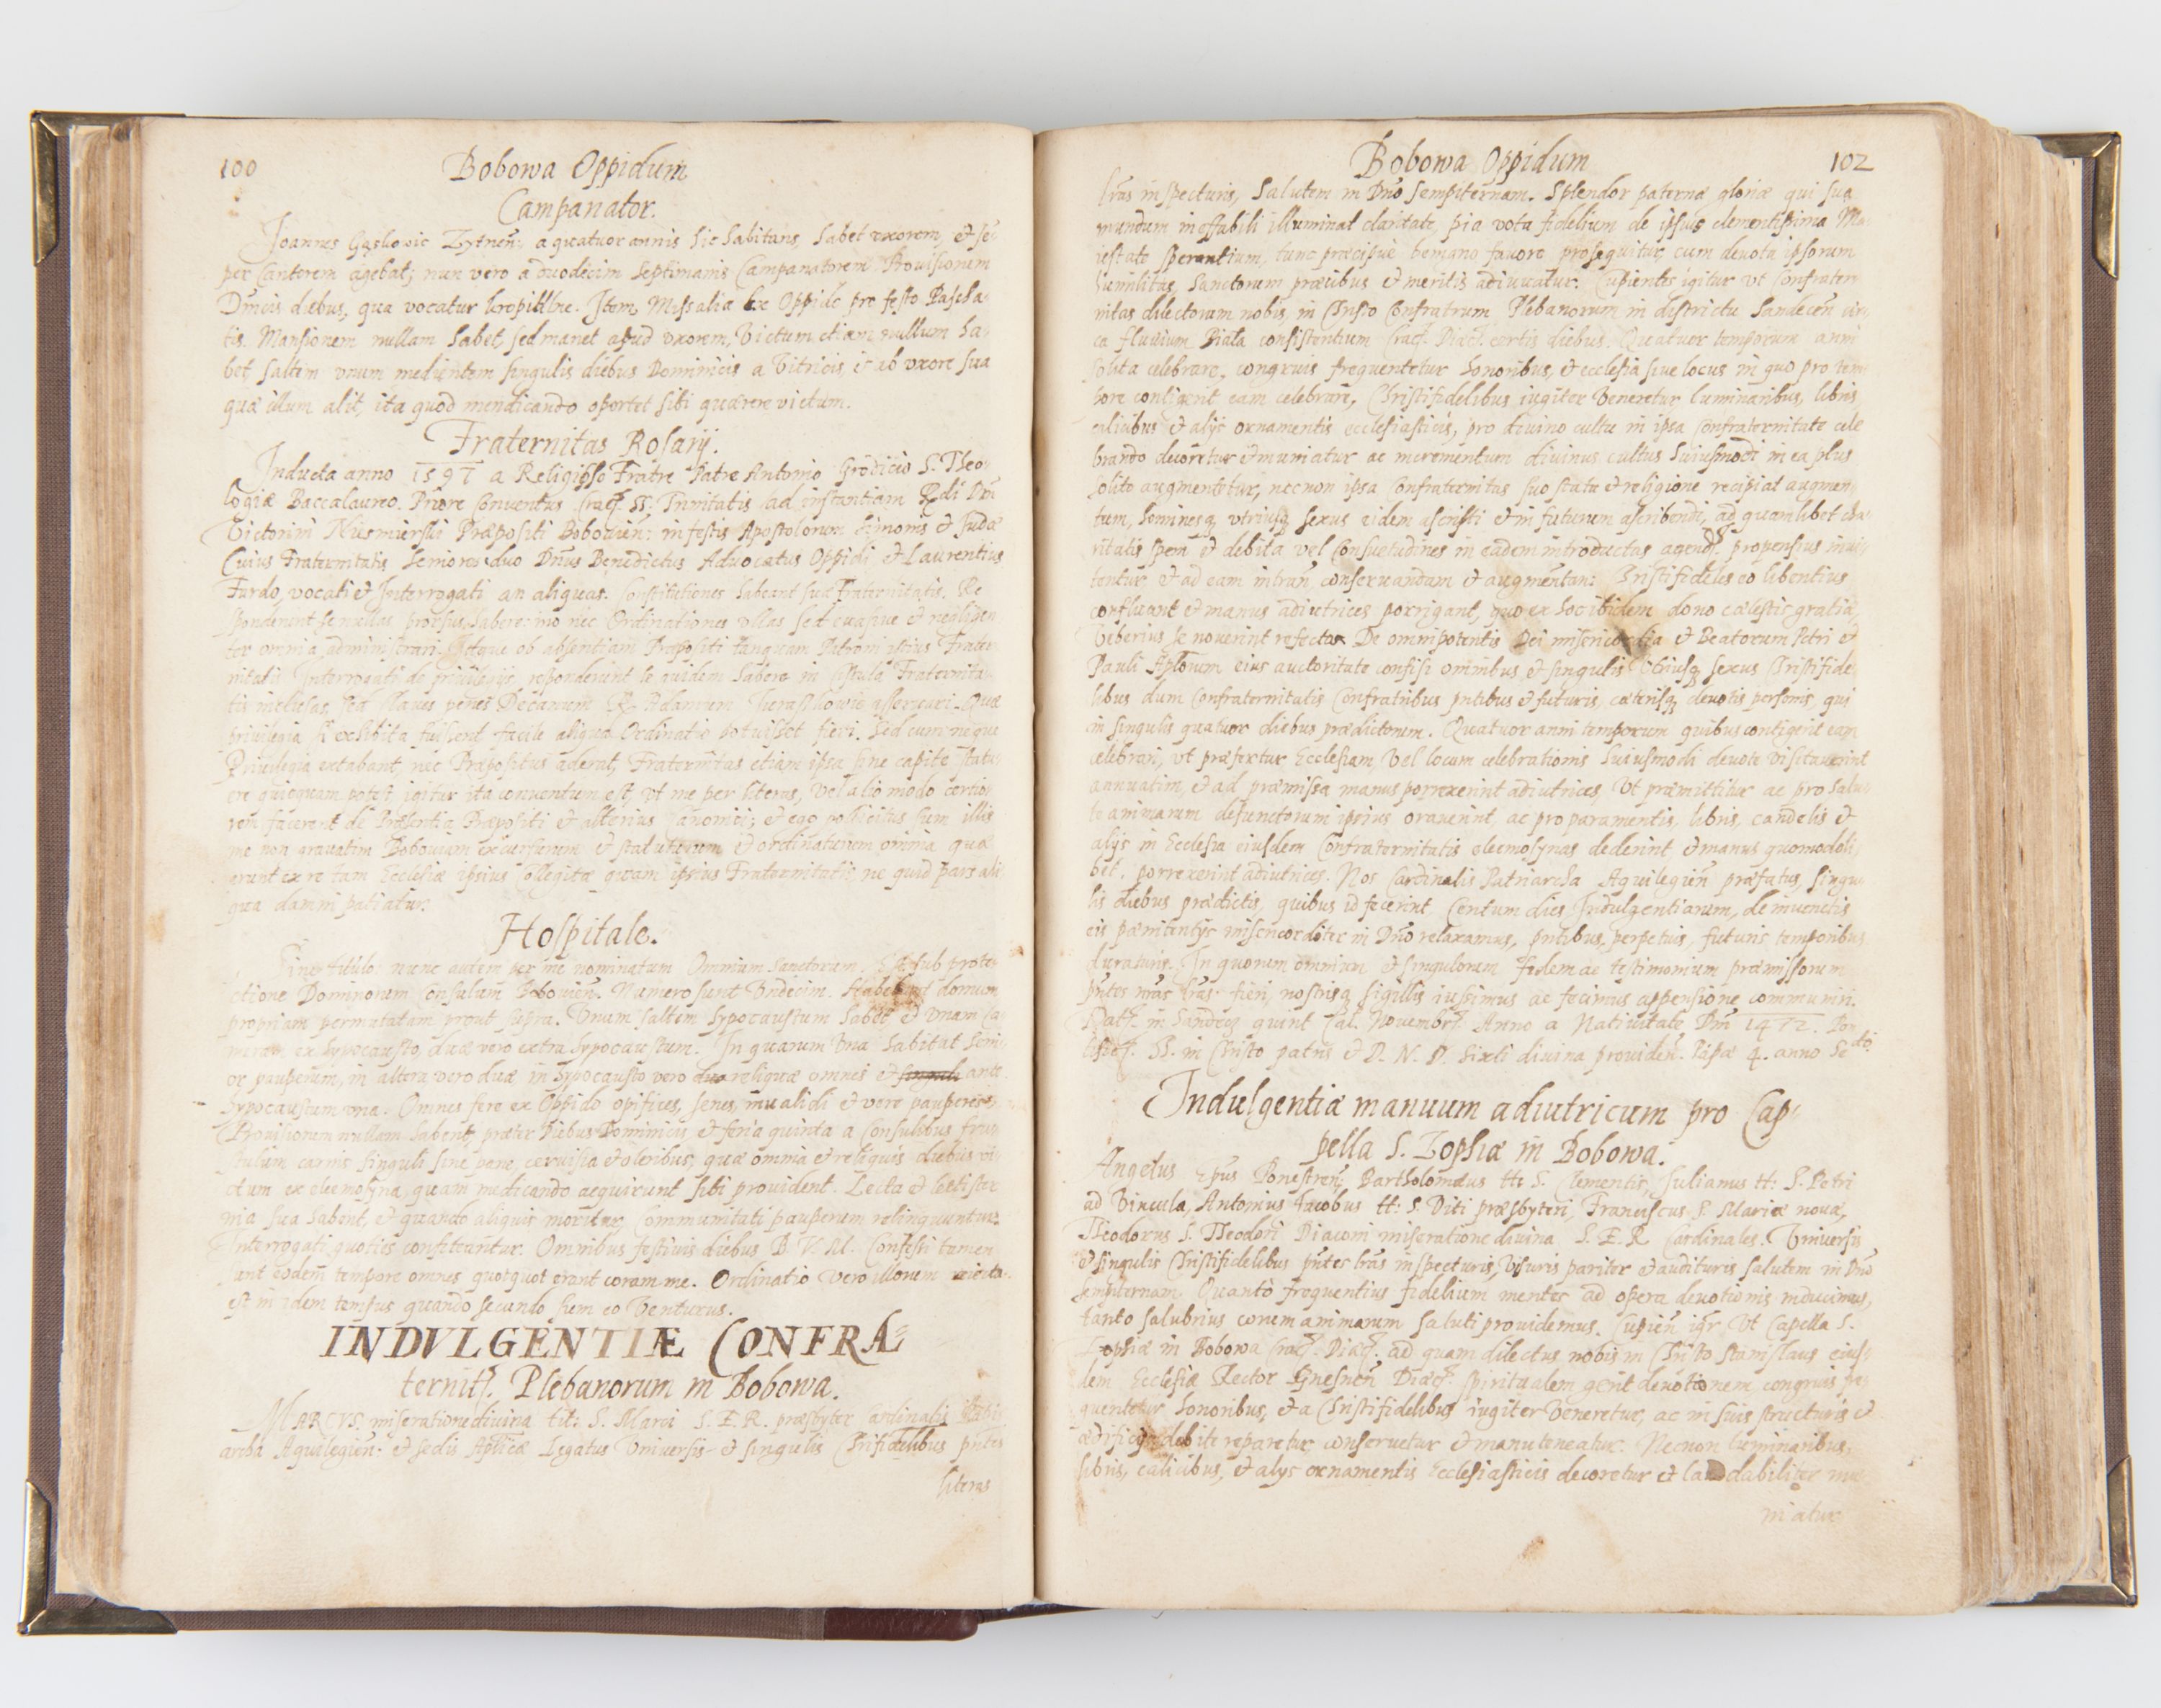 100
Bobowa Oppidum
Campanator.
Joannes Zytneñ: a quatuor annis hic habitans, habet uxorem, et se:
per Cantorem agebat; nun vero a duodecim Septimanis Campanatorem Prouisionem
Dnicis diebus, qua vocatur kropidlne. Item Missalia ex Oppido pro festo Pascha=
tis. Mansionem nullam habet, sed manet apud vxorem, Victum etiam nullum ha=
bet, saltem vnum medientem singulis diebus Dominicis a Vitricis et ab vxore sua
quæ illum alit, ita quod mendicando oportet sibi quærere victum.
Fraternitas Rosarij.
Inducta anno 1597 a Religioso Fratre Patre Antonio Grodicio S. Theo=
logiæ Baccalaureo. Priore Conventus Crac. SS. Trinitatis ad instantiam Rdi Dni
Victorini Præpositi Bobouien: in festis Apostolorum Simonis et Judæ
Cuius Fraternitatis Seniores duo Dnus Benedictus Aduocatus Oppidi et Laurentius
Furdo, vocati et Interrogati an aliquas Constitutiones habeant suæ Fraternitatis. Re
sponderunt se nullas prorsus habere imo nec Ordinationes vllas sed euasiue et negligen
ter omnia administrari. Idque ob absentiam Præpositi tanquam Patroni istius Frater
nitatis. Interrogati de priuilegijs, responderunt se quidem habere in Cistula Fraternita=
tis inclusas, sed claues penes Decanum R. Adamum asseruari. Quæ
priuilegia si exhibita fuissent facile aliqua Ordinatio potuisset fieri. Sed cum neque
Priuilegia extabant, nec Præpositus aderat, Fraternitas etiam ipsa sine capite statu
ere quicquam potest, igitur ita conuentum est, vt me per literas, vel alio modo certio
rem facerent de Præsentia Præpositi et alterius Canonici; et ego pollicitus sum illis
me non grauatim Bobouam excursurum et statuturum et ordinaturum omnia quæ
erunt ex re tam Ecclesiæ ipsius Collegiatæ quam ipsius Fraternitatis, ne quid pars ali
qua damni patiatur.
Hospitale.
Sine titulo: nunc autem per me nominatum Omnium Sanctorum. Est sub prote=
ctione Dominorum Consulum Bobouien. Numero sunt Vndecim. Habebant domum
propriam permutatam prout supra. Vnum saltem hypocaustum habet et vnam Ca
meram ex hypocausto, duæ vero extra hypocaustum. In quarum vna habitat Seni=
or pauperum, in altera vero duæ in hypocausto vero reliquæ omnes et singuli ante
hypocaustum vna. Omnes fere ex Oppido opifices, senes, inualidi et vere pauperes,
Prouisionem nullam habent, præter Diebus Dominicis et feria quinta a Consulibus fru=
stulum carnis singuli sine pane, ceruisia et oleribus, quæ omnia et reliquis diebus vi=
ctum ex eleemosyna, quam medicando acquirunt sibi prouident. Lecta et lectister
nia sua habent, et quando aliquis moritur, Communitati pauperum relinquuntur.
Interrogati quoties confiteantur. Omnibus festiuis diebus B. V. M. Confessi tamen
sunt eodem tempore omnes quotquot erant coram me. Ordinatio vero illorum reiecta
est in idem tempus quando secundo sum eo venturus.
INDVLGENTIÆ CONFRA=
ternit. Plebanorum in Bobowa.
MARCVS miseratione divina tit: S. Marci S. E. R. præsbyter Cardinalis Patri
archa Aquilegien: et sedis Aplicæ Legatus Vniversis et singulis Chrifidelibus pntes
literas
Bobowa Oppidum
102
lras inspecturis, Salutem in Dno sempiternam. Splendor paternæ gloriæ qui sua
mundum ineffabili illuminat claritate, pia vota fidelium de ipsius clementissima Ma=
iestate sperantium, tunc præcipue benigno fauore prosequitur, cum deuota ipsorum
humilitas, Sanctorum præcibus et meritis adiuuatur. Cupientes igitur vt Confrater=
nitas dilectorum nobis, in Christo Confratrum Plebanorum in districtu Sandecen cir=
ca fluuium Biala consistentium Crac. Diæc. certis diebus. Quatuor temporum anni
solita celebrare, congruis frequentetur honoribus, et ecclesia siue locus in quo pro tem=
pore contigerit eam celebrare, Christifidelibus iugiter veneretur, luminaribus, libris
calicibus et alijs ornamentis ecclesiasticis, pro diuino cultu in ipsa Confraternitate cele
brando decoretur et muniatur ac incrementum diuinus cultus huiusmodi in ea plus
solito augmentetur, necnon ipsa Confraternitas suo statu et religione recipiat augmen
tum, hominesq vtriusq sexus eidem ascripti et in futurum ascribendi, ad quamlibet cha=
ritatis spem et debita vel Consuetudines in eadem introductas agend. propensius inui=
tentur et ad eam intran conseruandam et augmentan: Christifideles eo libentius
confluant et manus adiutrices porrigant, quo ex hoc ibidem dono cælestis gratiæ
Vberius se nouerint refectos De omnipotentis Dei misericordia et Beatorum Petri et
Pauli Aplorum eius auctoritate confisi omnibus et singulis vtriusq sexus Christifide=
libus dum Confraternitatis Confratribus pntibus et futuris, cæterisq deuotis personis, qui
in singulis quatuor diebus prædictorum. Quatuor anni temporum quibus contigerit eam
celebrari, vt præfertur Ecclesiam, vel locum celebrationis huiusmodi deuote visitauerint
annuatim, et ad præmissa manus porrexerint adiutrices, Vt præmittitur ac pro salu=
te animarum defunctorum ipsius orauerint, ac pro paramentis, libris, candelis et
alijs in Ecclesia eiusdem Confraternitatis eleemosynas dederint et manus quomodoli
bet. porrexerint adiutrices. Nos Cardinalis Patriarcha Aquilegien præfatus, singu=
lis diebus prædictis, quibus id fecerint Centum dies Indulgentiarum, de iniunctis
eis pænitentijs misericorditer in Dno relaxamus, pntibus, perpetuis, futuris temporibus
duraturis. In quorum omnium et singulorum fidem ac testimonium præmissorum
pntes nras lras. fieri, nostrisq sigillis iussimus ac fecimus appensione communiri.
Dat. in Sandecz quint Cal. Novembr. Anno a Natiuitate Dni 1472. Pon
tific. SS. in Christo patris et D. N. D. Sixti diuina prouiden. Papæ 4. anno Secdo
Indulgentiæ manuum adiutricum pro Cap=
pella S. Zophiæ in Bobowa.
Angelus Epus Bartholomæus tt: S. Clementis, Julianus tt: S. Petri
ad Vincula, Antonius Jacobus tt: S. Viti præsbyteri, Franciscus S. Mariæ nouæ,
Theodorus S. Theodori Diaconi miseratione diuina S. E. R Cardinales. Vniuersis
et singulis Christifidelibus pntes lras inspecturis, visuris pariter et audituris salutem in Dno
sempiternam. Quanto frequentius fidelium mentes ad opera deuotionis inducimus,
tanto salubrius eorum animarum saluti prouidemus. Cupien igr Vt Capella S.
Zophiæ in Bobowa Crac. Diæc. ad quam dilectus nobis in Christo Stanislaus eius=
dem Ecclesiæ Rector Gnesnen Diæc. spiritualem gerit deuotionem congruis fre
quentetur honoribus, et a Christifidelibus iugiter Veneretur, ac in suis structuris et
ædificijs debite reparetur conseruetur et manuteneatur. Necnon luminaribus,
libris, calicibus, et alijs ornamentis Ecclesiasticis decoretur et laudabiliter mu=
niatur